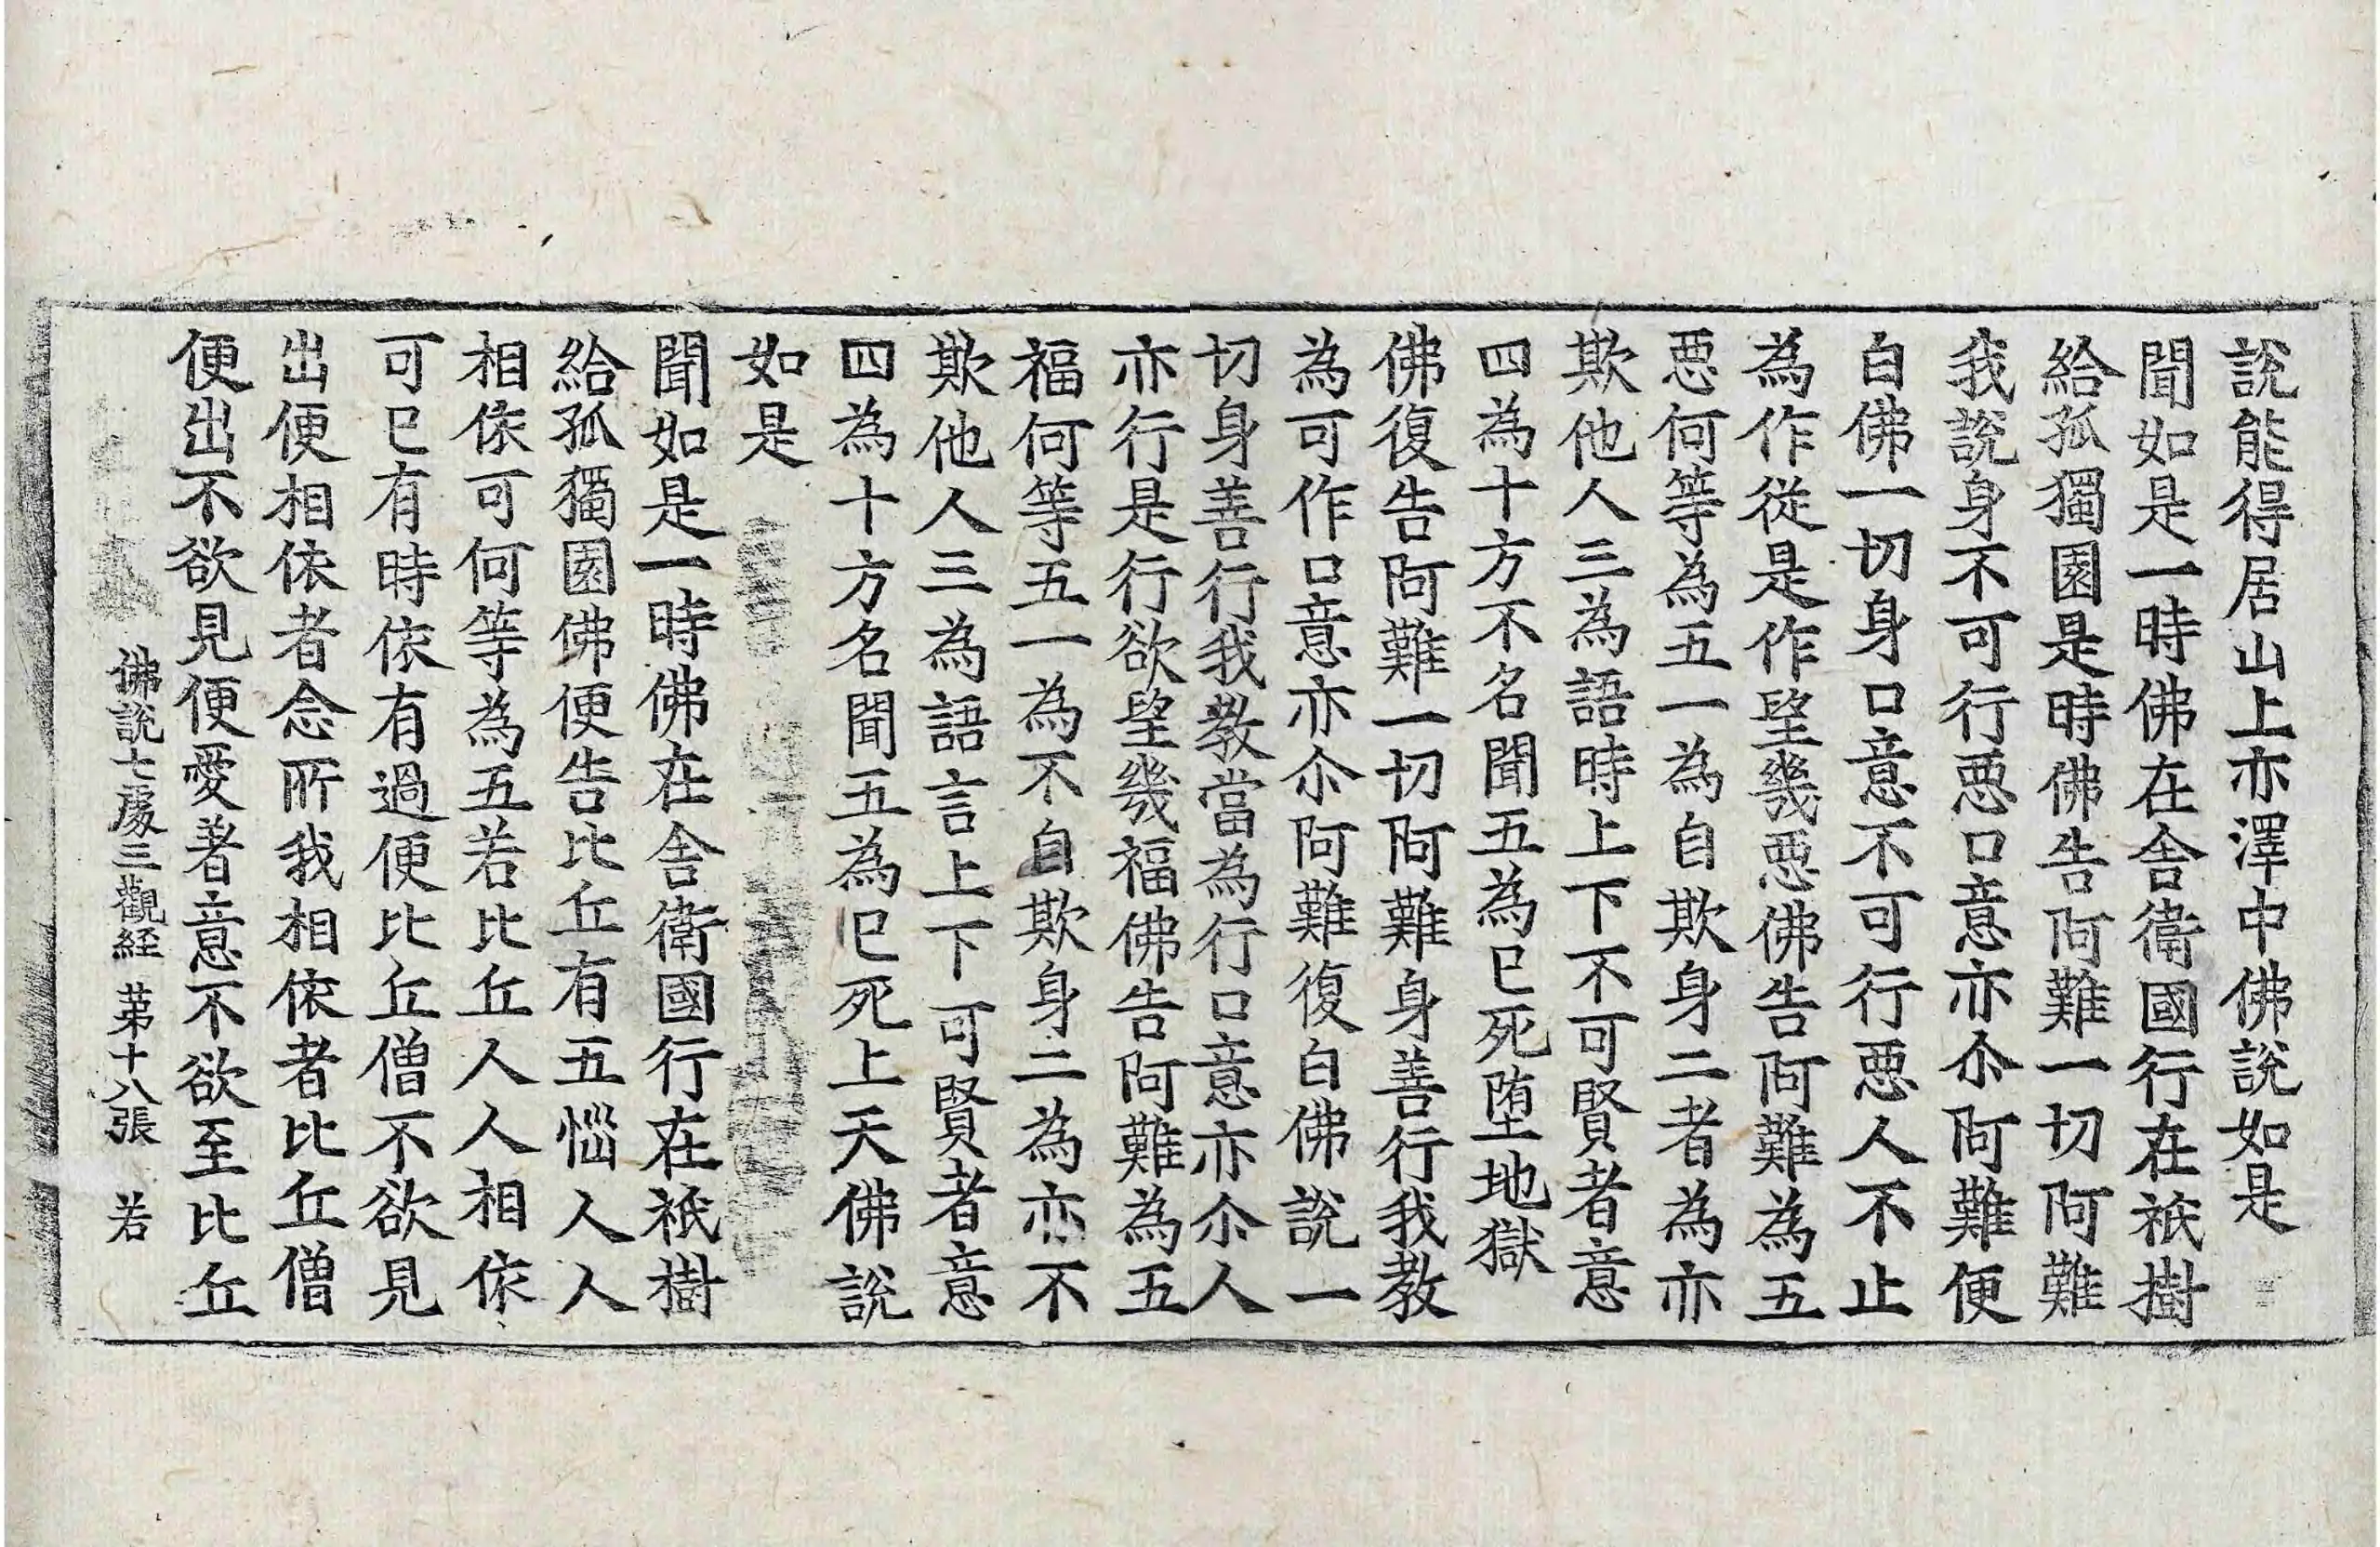 說能得居山上亦澤中佛說如是
聞如是一時佛在舍衛國行在祇樹
給孤獨園是時佛告阿難一切阿難
我說身不可行悪口意亦尒阿難便
白佛一切身口意不可行悪人不止
為作從是作望幾悪佛告阿難為五
悪何等為五一為自欺身二者為亦
欺他人三為語時上下不可賢者意
四為十方不名聞五為已死堕地獄
佛復告阿難一切阿難身善行我教
為可作口意亦尒阿難復白佛說一
切身善行我教當為行口意亦尒人
亦行是行欲望幾福佛告阿難為五
福何等五一為不自欺身二為亦不
欺他人三為語言上下可賢者意
四為十方名聞五為已死上天佛說
如是
聞如是一時佛在舍衛國行在祇樹
給孤獨園佛便告比丘有五惱人人
相依可何等為五若比丘人人相依
可已有時依有過便比丘僧不欲見
出便相依者念所我相依者比丘僧
便出不欲見便愛著意不欲至比丘
佛說七處三觀経 苐十八張 若